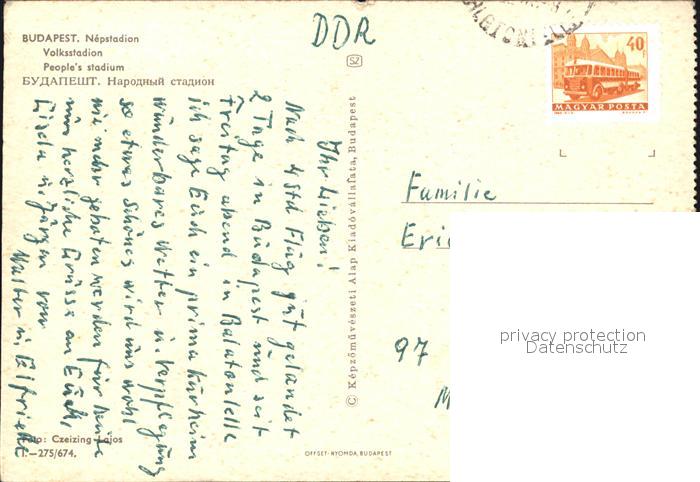 BUDAPEST. Népstadion
Volksstadion
People's stadium
БУДАПЕШТ. Народный стадион
DDR
SZ
40
MAGYAR POSTA
Ihr Lieben!
Nach 4 Std Flug gut gelandet
2 Tage in Budapest und seit
Freitag abend in Balatonlelle
ich sage Euch ein prima Kurheim
wunderbares Wetter u. Verpflegung
so etwas Schönes wird uns wohl
nie mehr geboten werden für heute
nur herzliche Grüsse an Euch,
Gisela u. Jürgen von
Walter u. Elfriede
© Képzőművészeti Alap Kiadóvállalata, Budapest
Familie
97
privacy protection
Datenschutz
Foto: Czeizing Lajos
I.-275/674.
OFFSET-NYOMDA, BUDAPEST